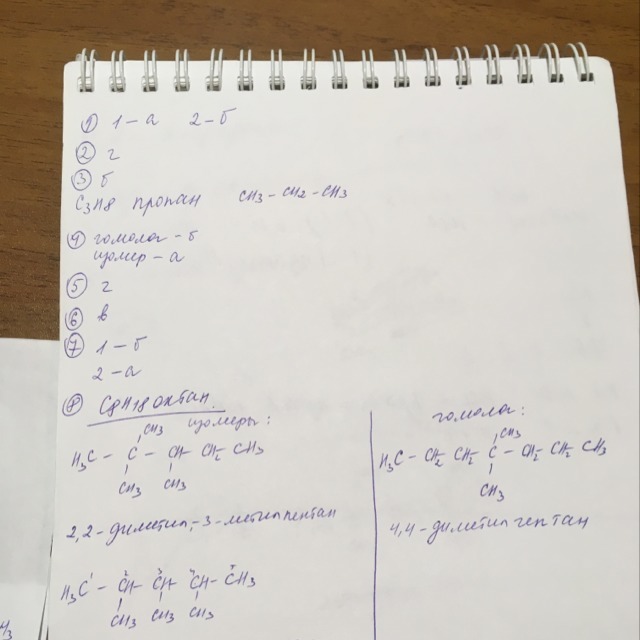 ① 1-а 2-б
② г
③ б
C3H8 пропан CH3-CH2-CH3
④ гомолог-б
изомер-а
⑤ г
⑥ в
⑦ 1-б
2-а
⑧ C8H18 октан.
изомеры:
CH3
H3C - C - CH - CH2 CH3
CH3 CH3
2,2-диметил,-3-метилпентан
H3C - CH - CH - CH - CH3
CH3 CH3 CH3
гомолог:
CH3
H3C - CH2 CH2 C - CH2 CH2 CH3
CH3
4,4-диметилгептан